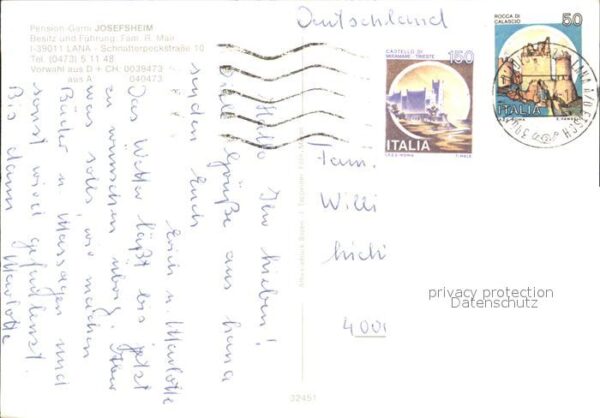 Pension-Garni JOSEFSHEIM
Besitz und Führung: Fam. R. Mair
I-39011 LANA - Schnatterpeckstraße 10
Tel. (0473) 5 11 48
Vorwahl aus D + CH: 0039473
aus A: 040473
Deutschland
CASTELLO DI
MIRAMARE TRIESTE
150
ITALIA
I.P.Z.S. ROMA
ROCCA DI
CALASCIO
50
ITALIA
Hallo Ihr Lieben!
Viele Grüße aus Lana
senden Euch
Erich u. Marlotte
Das Wetter läßt bis jetzt
zu wünschen übrig. Aber
was solls, wir machen
Bäder u. Massagen und
sonst wird gefaulenzt.
Bis dann Marlotte
Fam.
Willi
400
privacy protection
Datenschutz
32451